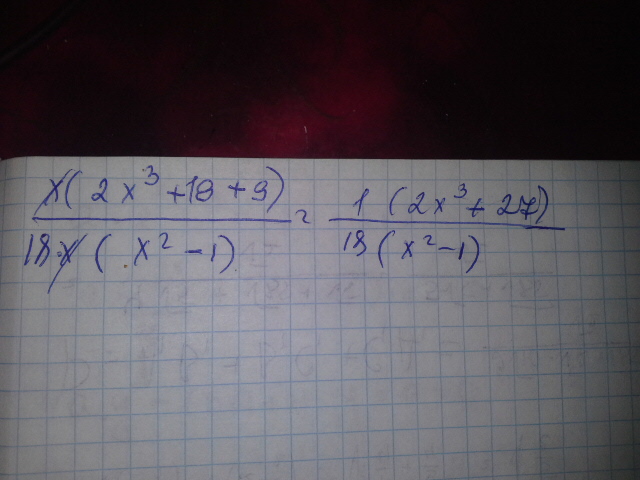 x(2x³+18+9) / 18·x(x²-1) = 1(2x³+27) / 18(x²-1)